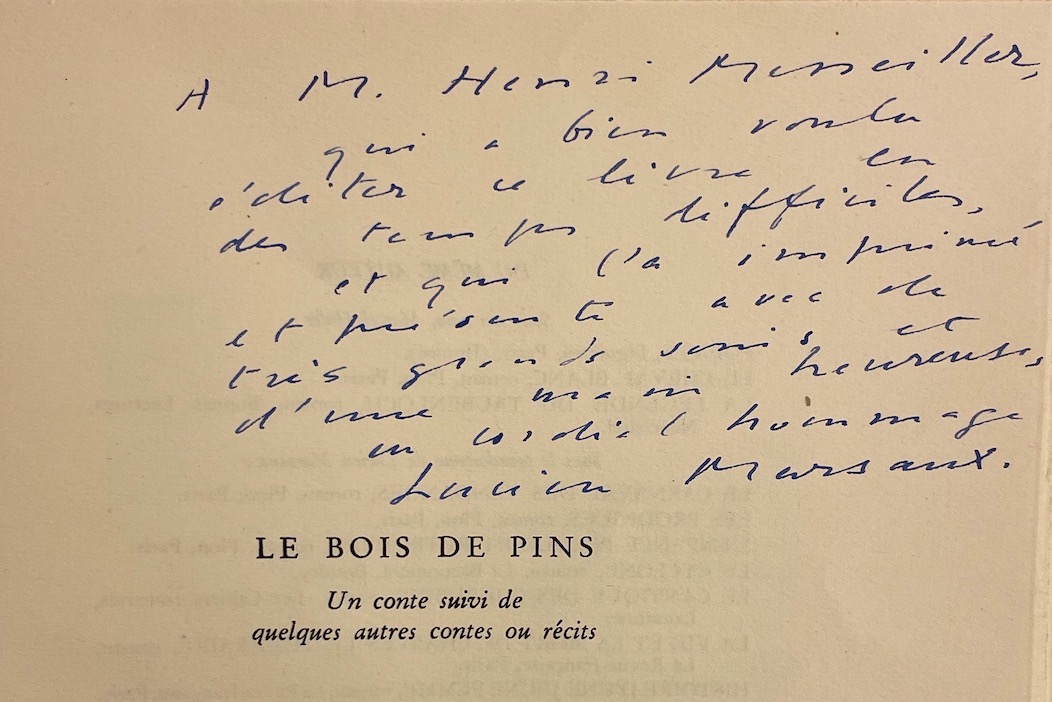 A M. Henri Messeiller,
qui a bien voulu
éditer ce livre en
des temps difficiles,
et qui l'a imprimé
et présenté avec de
très grands soins et
d'une main heureuse,
en cordial hommage
Lucien Marsaux.
LE BOIS DE PINS
Un conte suivi de
quelques autres contes ou récits